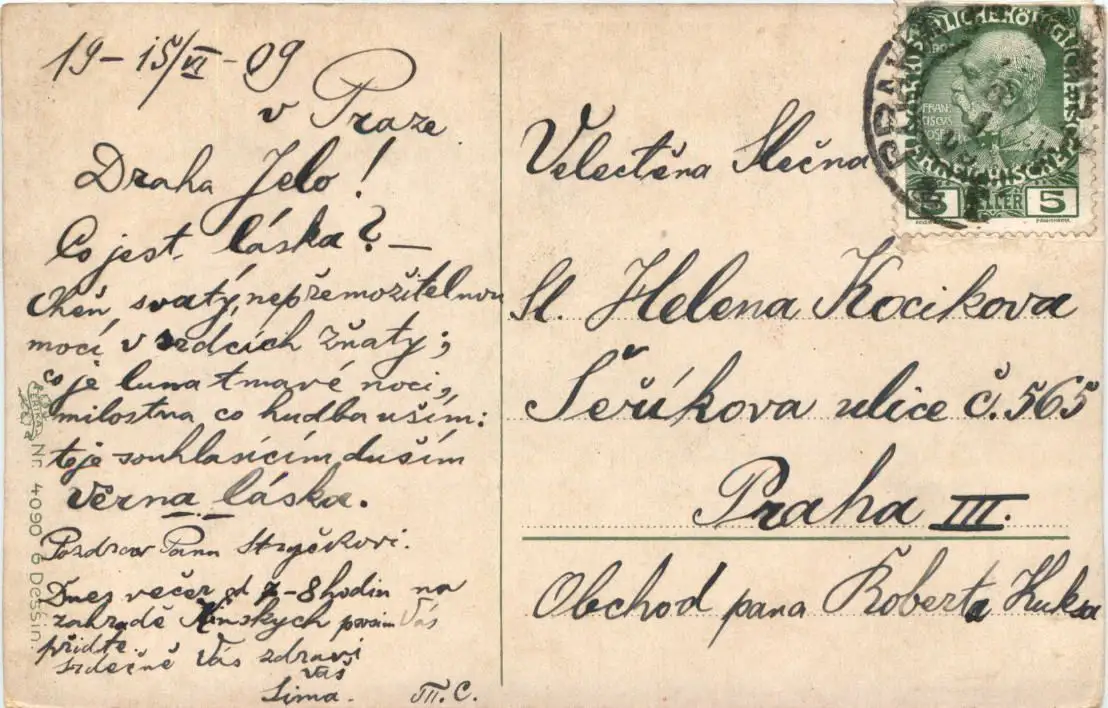 19-15/VI-09
v Praze
Draha Jelo!
Co jest láska? —
Oheň svatý, nepřemožitelnou
mocí v srdcích žňatý;
co je luna tmavé noci,
milostna co hudba uším:
toje souhlasícím duším
věrna láska.
Pozdrav Panu Strýčkovi.
Dnes večer od 7-8 hodin na
zahradě Kinských prosím Vás
přidte.
Srdečně Vás zdraví
Váš
Sima. III. C.
Velectěna Slečna
Sl. Helena Kocikova
Šeříkova ulice č. 565
Praha III.
Obchod pana Roberta Kuksa
FRAN
CISCVS
IOSEPH
5 HELLER 5
SERIE
Nr. 4090 6 Dessin